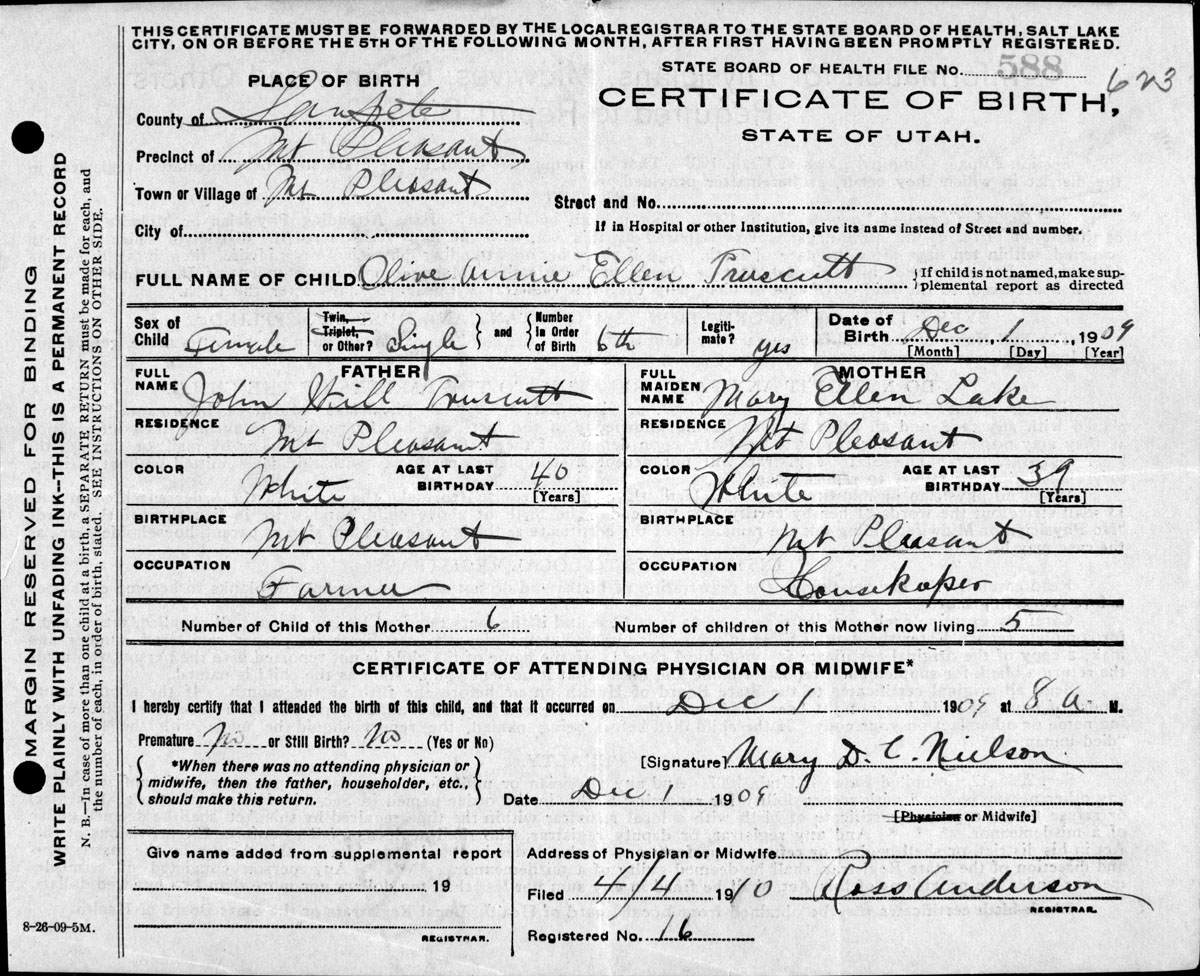 THIS CERTIFICATE MUST BE FORWARDED BY THE LOCAL REGISTRAR TO THE STATE BOARD OF HEALTH, SALT LAKE
CITY, ON OR BEFORE THE 5TH OF THE FOLLOWING MONTH, AFTER FIRST HAVING BEEN PROMPTLY REGISTERED.
STATE BOARD OF HEALTH FILE No. 588 623
PLACE OF BIRTH
CERTIFICATE OF BIRTH,
STATE OF UTAH.
County of SanPete
Precinct of Mt Pleasant
Town or Village of Mt Pleasant
Street and No.
City of
If in Hospital or other Institution, give its name instead of Street and number.
FULL NAME OF CHILD Olive Annie Ellen Truscutt } If child is not named, make sup-
plemental report as directed
Sex of Child Female Twin, Triplet, or Other? Single } and { Number in Order of Birth 6th Legiti-mate? yes Date of Birth Dec 1 1909
[Month] [Day] [Year]
FATHER MOTHER
FULL NAME John Hill Truscutt FULL MAIDEN NAME Mary Ellen Lake
RESIDENCE Mt Pleasant RESIDENCE Mt Pleasant
COLOR White AGE AT LAST BIRTHDAY 40 [Years] COLOR White AGE AT LAST BIRTHDAY 39 [Years]
BIRTHPLACE Mt Pleasant BIRTHPLACE Mt Pleasant
OCCUPATION Farmer OCCUPATION Housekaper
Number of Child of this Mother 6 Number of children of this Mother now living 5
CERTIFICATE OF ATTENDING PHYSICIAN OR MIDWIFE*
I hereby certify that I attended the birth of this child, and that it occurred on Dec 1 1909 at 8 a M.
Premature No or Still Birth? No (Yes or No)
*When there was no attending physician or
midwife, then the father, householder, etc.,
should make this return.
[Signature] Mary D. C. Nielson
Date Dec 1 1909
[Physician or Midwife]
Give name added from supplemental report
19
REGISTRAR.
Address of Physician or Midwife
Filed 1/4 1910 Ross Anderson
REGISTRAR.
Registered No. 16
8-26-09-5M.
MARGIN RESERVED FOR BINDING
WRITE PLAINLY WITH UNFADING INK--THIS IS A PERMANENT RECORD
N. B.—In case of more than one child at a birth, a SEPARATE RETURN must be made for each, and
the number of each, in order of birth, stated. SEE INSTRUCTIONS ON OTHER SIDE.